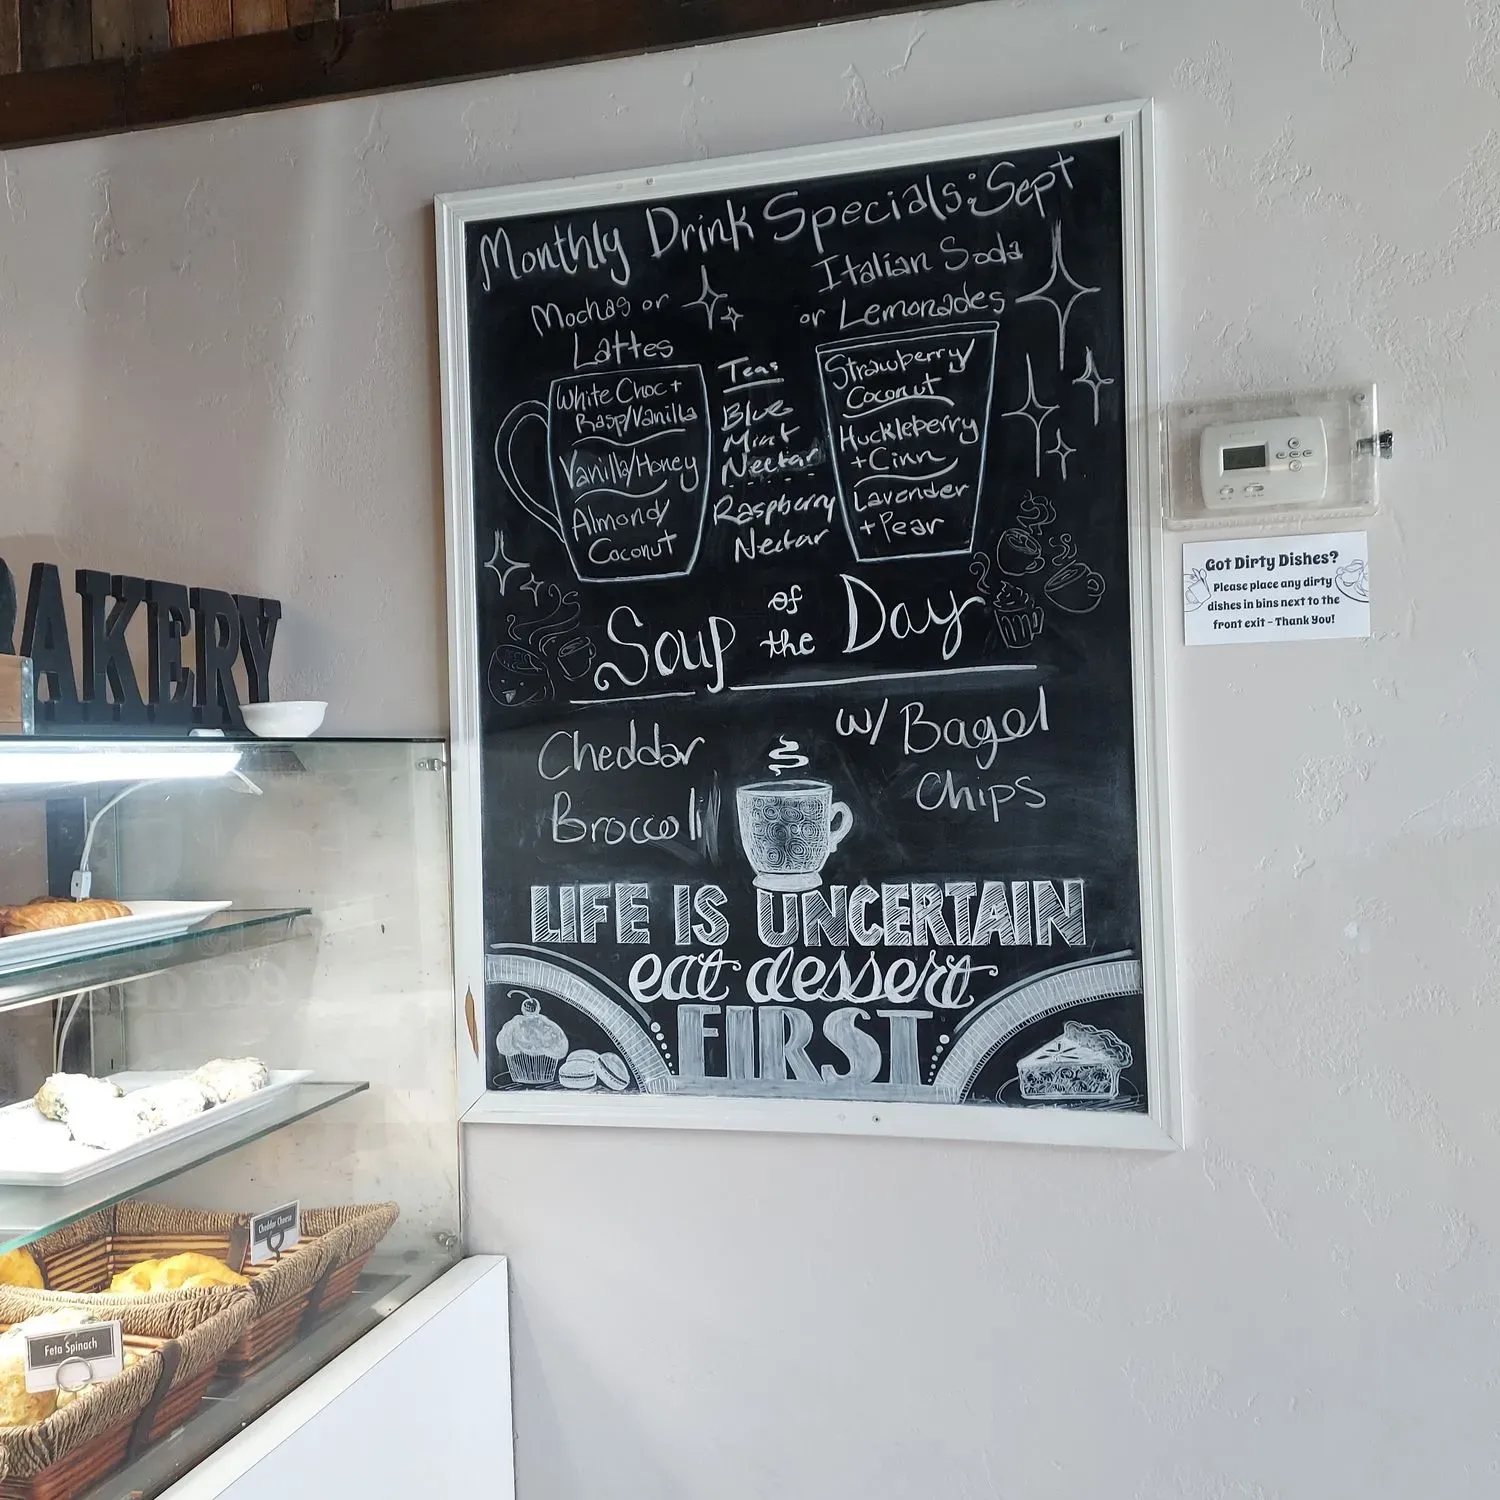 Monthly Drink Specials: Sept
Mochas or
Lattes
White Choc +
Rasp/Vanilla
Vanilla/Honey
Almond/
Coconut
Teas
Blue
Mint
Nectar
Raspberry
Nectar
Italian Soda
or Lemonades
Strawberry/
Coconut
Huckleberry
+ Cinn
Lavender
+ Pear
Soup of the Day
Cheddar
Broccoli
w/ Bagel
Chips
LIFE IS UNCERTAIN
eat dessert
FIRST
AKERY
Cheddar Cheese
Feta Spinach
Got Dirty Dishes?
Please place any dirty
dishes in bins next to the
front exit - Thank You!